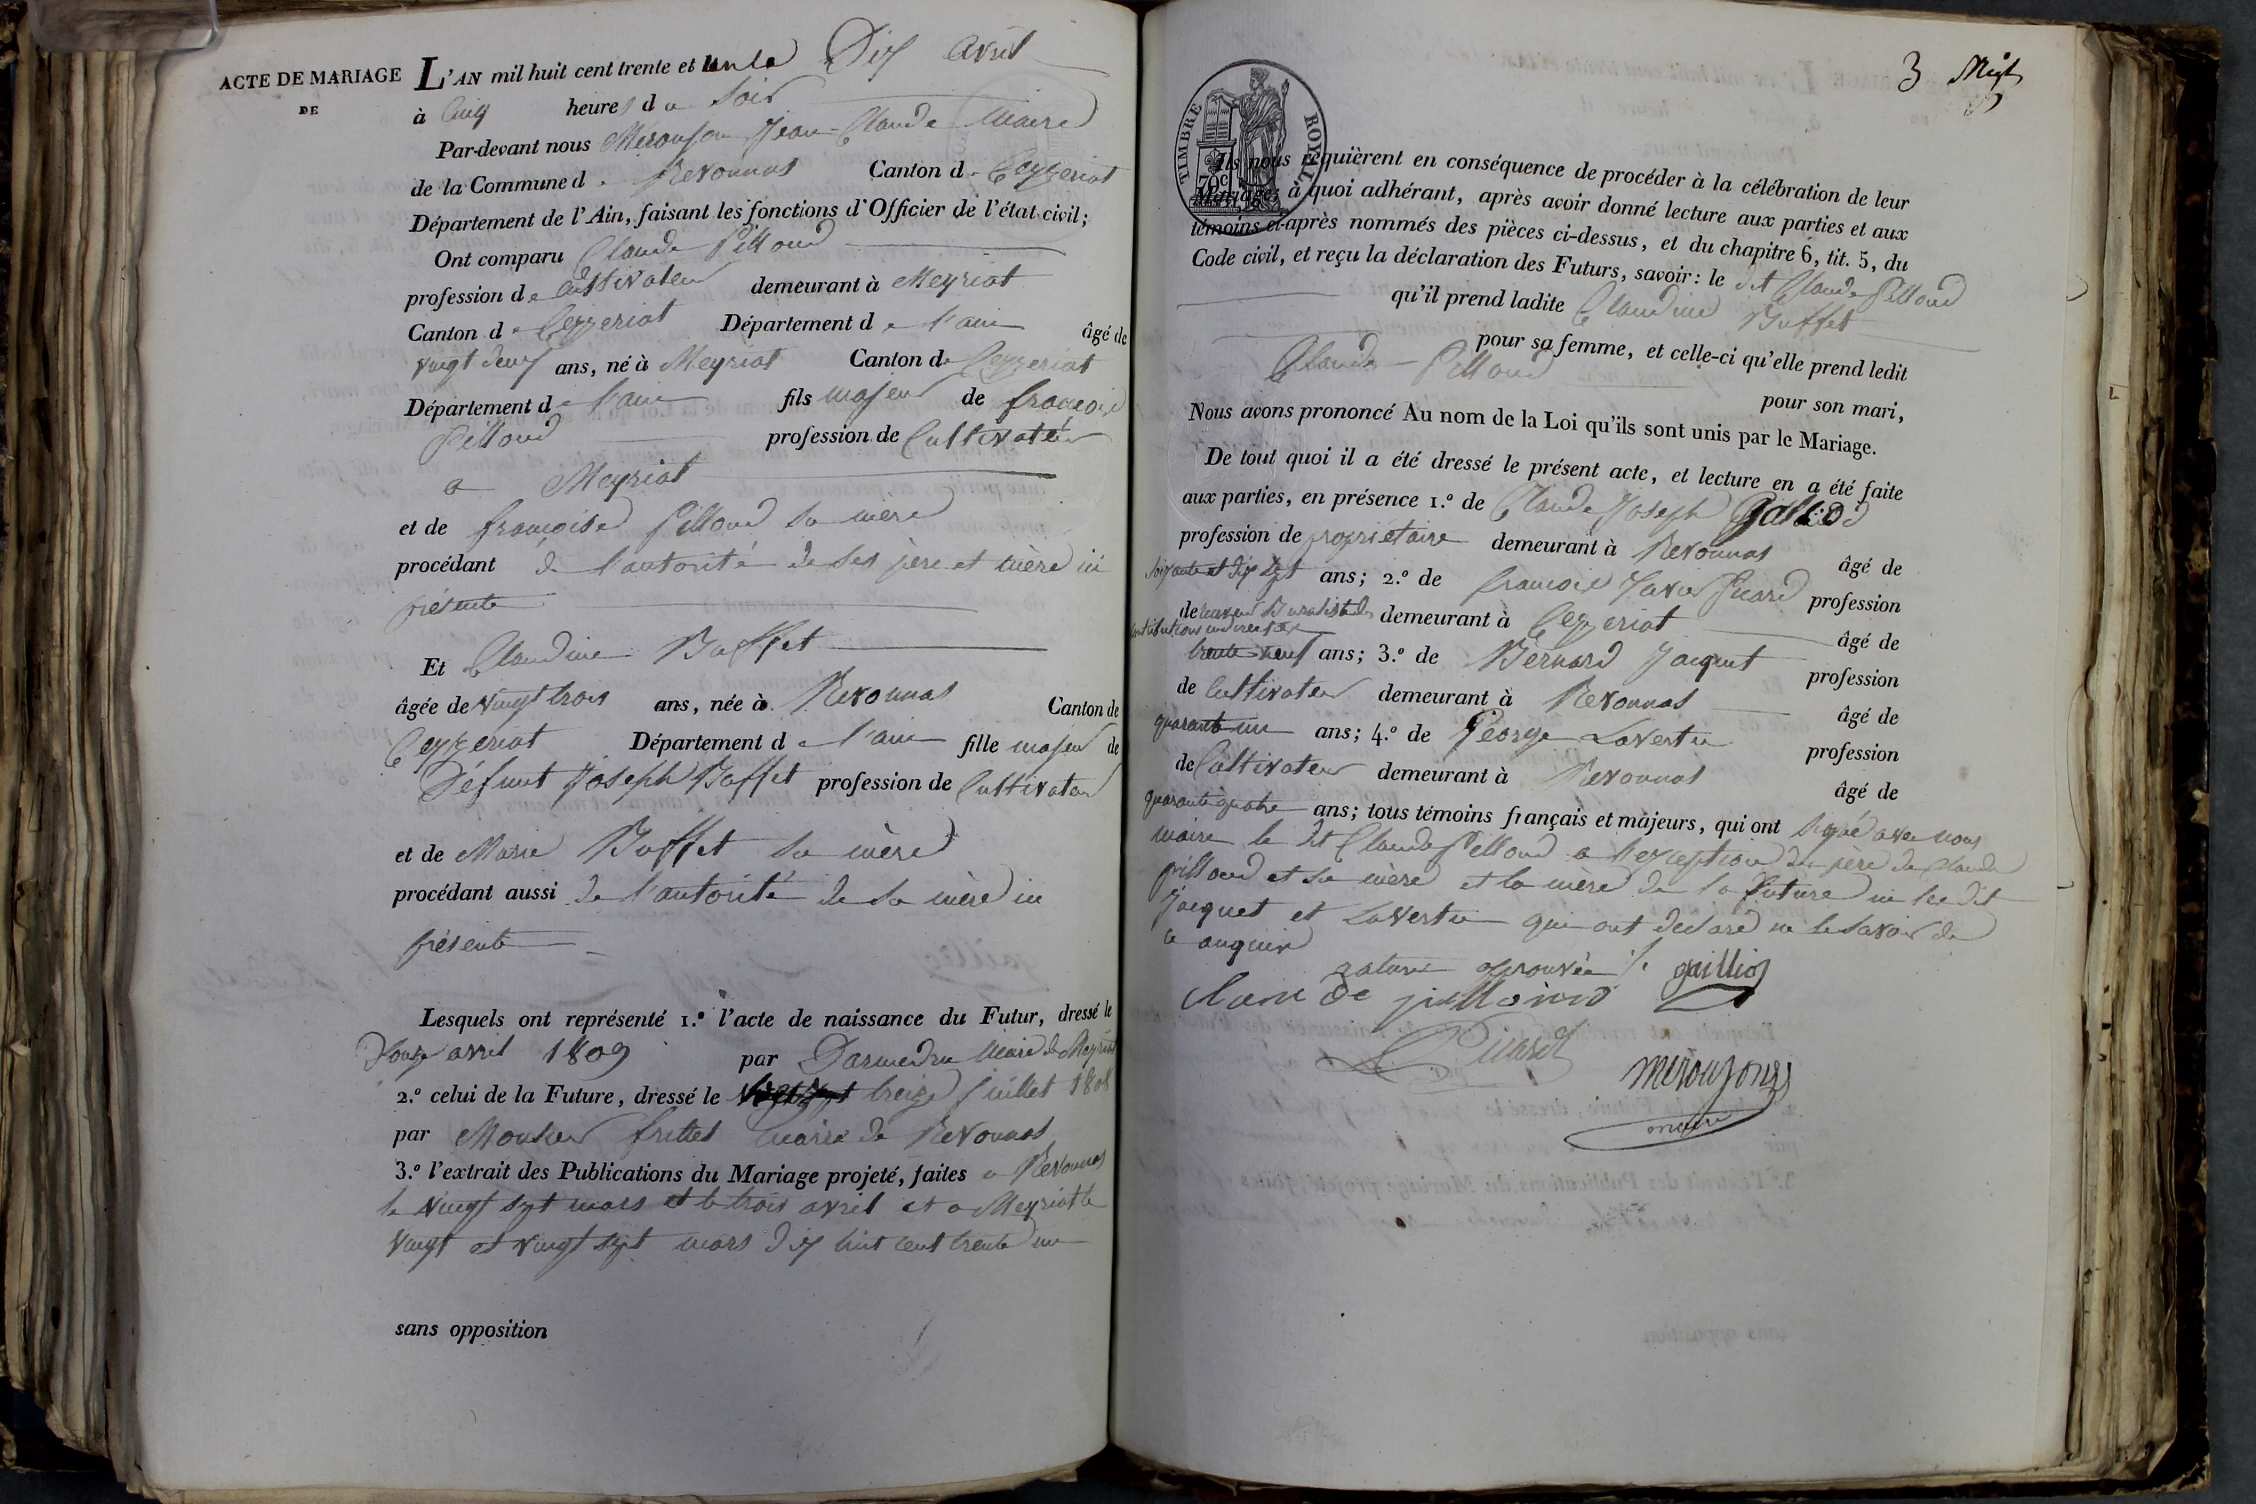 ACTE DE MARIAGE
DE
L'AN mil huit cent trente et un le Dix avril
à Cinq heures du Soir
Par-devant nous Jean-Claude Maire
de la Commune de Revonnas Canton de Ceyzeriat
Département de l'Ain, faisant les fonctions d'Officier de l'état civil;
Ont comparu Claude Pilloud
profession de Cultivateur demeurant à Meyriat
Canton de Ceyzeriat Département de l'ain âgé de
vingt deux ans, né à Meyriat Canton de Ceyzeriat
Département de l'ain fils majeur de françois
Pilloud profession de Cultivateur
a Meyriat
et de françoise Pilloud sa mère
procédant de l'autorité de ses père et mère ici
présents
Et Claudine Buffet
âgée de vingt trois ans, née à Revonnas Canton de
Ceyzeriat Département de l'ain fille majeur de
Défunt Joseph Buffet profession de Cultivateur
et de Marie Buffet sa mère
procédant aussi de l'autorité de sa mère ici
présente
Lesquels ont représenté 1.º l'acte de naissance du Futur, dressé le
Douze avril 1809 par Maire de Meyriat
2.º celui de la Future, dressé le treize juillet 1808
par Monsieur maire de Revonnas
3.º l'extrait des Publications du Mariage projeté, faites a Revonnas
le vingt sept mars et le trois avril et a Meyriat le
vingt et vingt sept mars dix huit cent trente un
sans opposition
3 
TIMBRE ROYAL
70c
Ils nous requièrent en conséquence de procéder à la célébration de leur
Mariage; à quoi adhérant, après avoir donné lecture aux parties et aux
témoins ci-après nommés des pièces ci-dessus, et du chapitre 6, tit. 5, du
Code civil, et reçu la déclaration des Futurs, savoir: le dit Claude Pilloud
qu'il prend ladite Claudine Buffet
pour sa femme, et celle-ci qu'elle prend ledit
Claude Pilloud
pour son mari,
Nous avons prononcé Au nom de la Loi qu'ils sont unis par le Mariage.
De tout quoi il a été dressé le présent acte, et lecture en a été faite
aux parties, en présence 1.º de Claude Joseph
profession de propriétaire demeurant à Revonnas âgé de
soixante et dix sept ans; 2.º de françois Xavier Picard profession
de Buraliste des demeurant à Ceyzeriat âgé de
contributions indirectes
trente neuf ans; 3.º de Bernard Jacquet profession
de Cultivateur demeurant à Revonnas âgé de
quarante un ans; 4.º de George Lavertu profession
de Cultivateur demeurant à Revonnas âgé de
quarante quatre ans; tous témoins français et majeurs, qui ont signé avec nous
maire le dit Claude Pilloud a l'exception du père de Claude
pilloud et sa mère et la mère de la future ni les dit
Jacquet et Lavertu qui ont déclaré ne le savoir de
ce enquis
gaillion
claude pilloud
Picard
maire